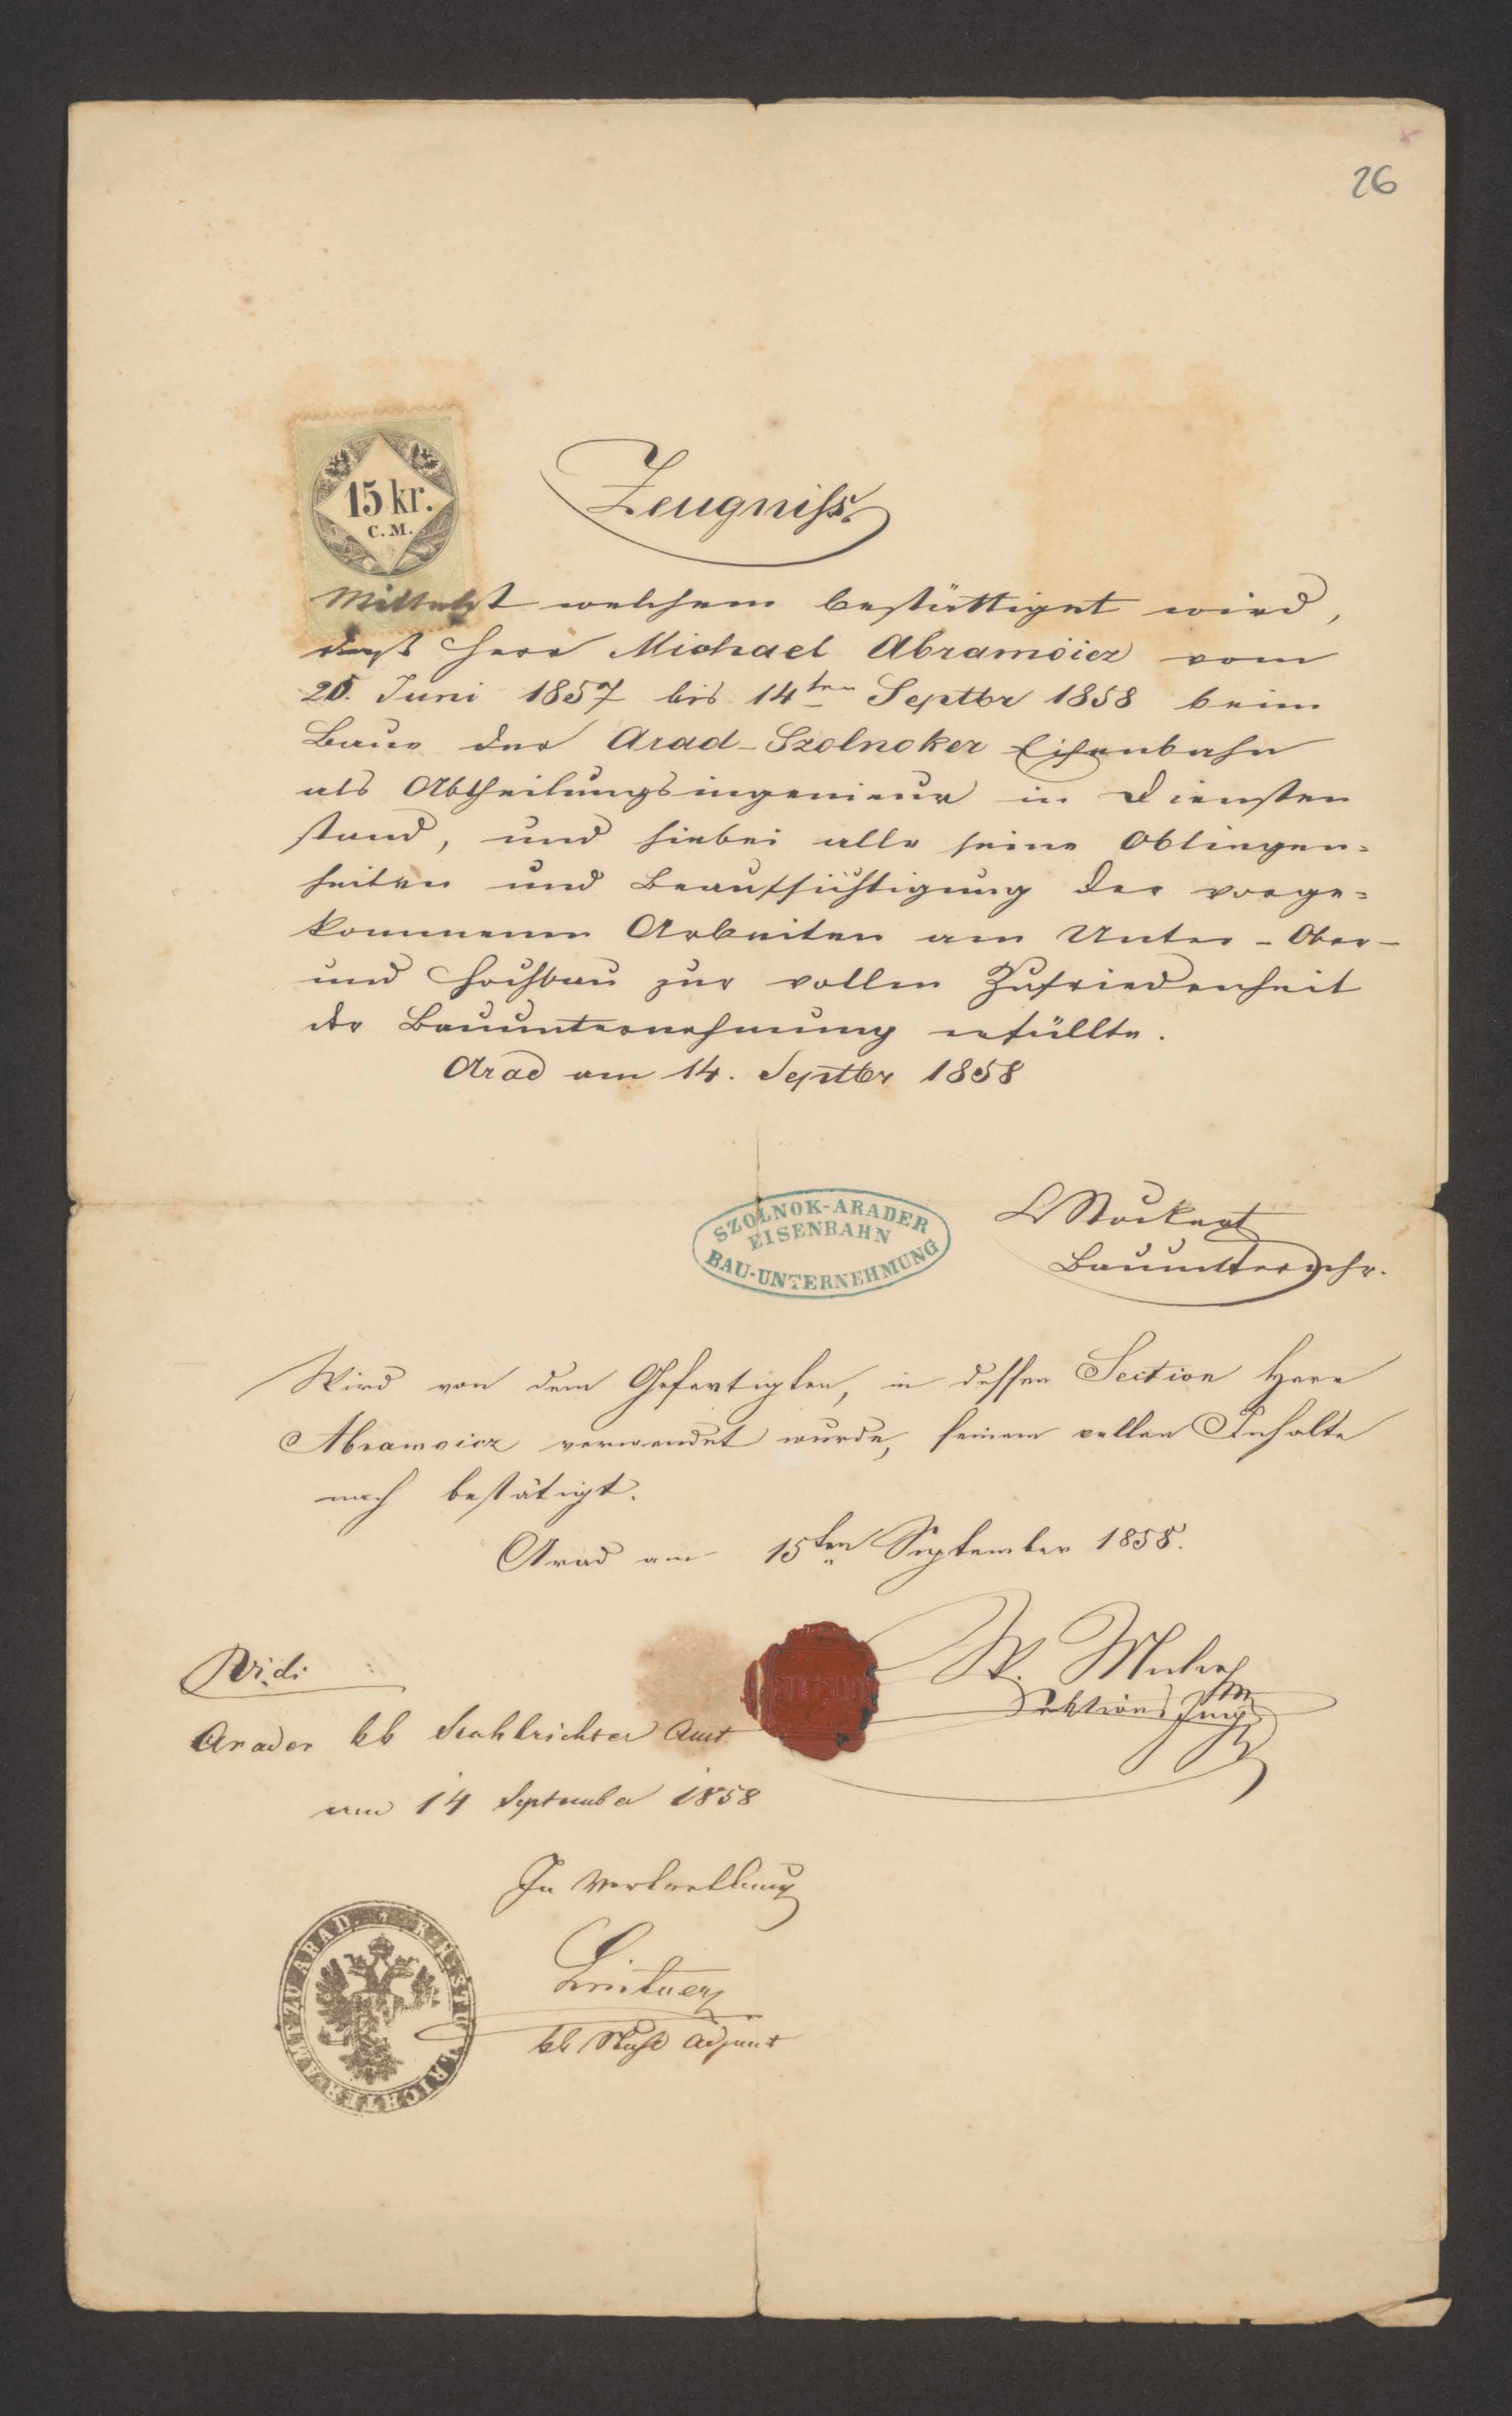 26
15 kr.
C.M.
Zeugniß
Mittelst welchem bestättiget wird,
daß Herr Michael Abramoicz vom
20. Juni 1857 bis 14ten Septbr 1858 beim
Baue der Arad-Szolnoker Eisenbahn
als Abtheilungsingenieur in Diensten
stand, und hiebei alle seine Obliegen=
heiten und Beaufsichtigung der vorge=
kommenen Arbeiten am Unter-Ober-
und Hochbau zur vollen Zufriedenheit
der Bauunternehmung erfüllte.
Arad am 14. Septbr 1858
SZOLNOK-ARADER
EISENBAHN
BAU-UNTERNEHMUNG
Bauunternehr.
Wird von dem Gefertigten, in dessen Section Herr
Abramoicz verwendet wurde, seinem vollen Inhalte
nach bestätigt.
Arad am 15ten September 1858.
W.
Sektions Ing
Vidi
Arader kk Stuhlrichter Amt
am 14 September 1858
In Vertretung
kk Adjunt
K.K. STUHLRICHTERAMT ZU ARAD